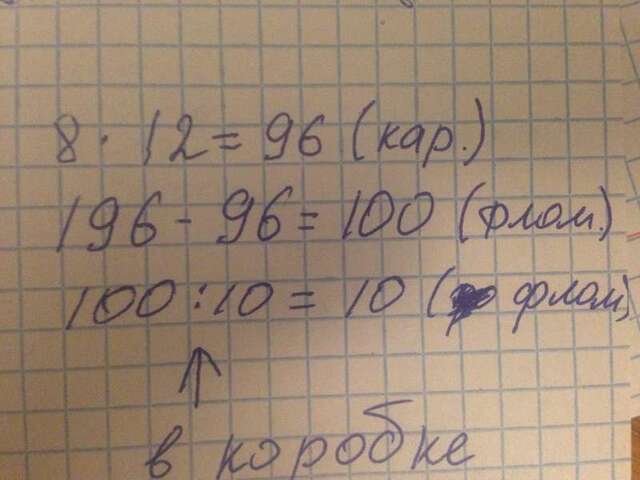 8 · 12 = 96 (кар.)
196 - 96 = 100 (флом.)
100 : 10 = 10 ( флом)
↑
в коробке